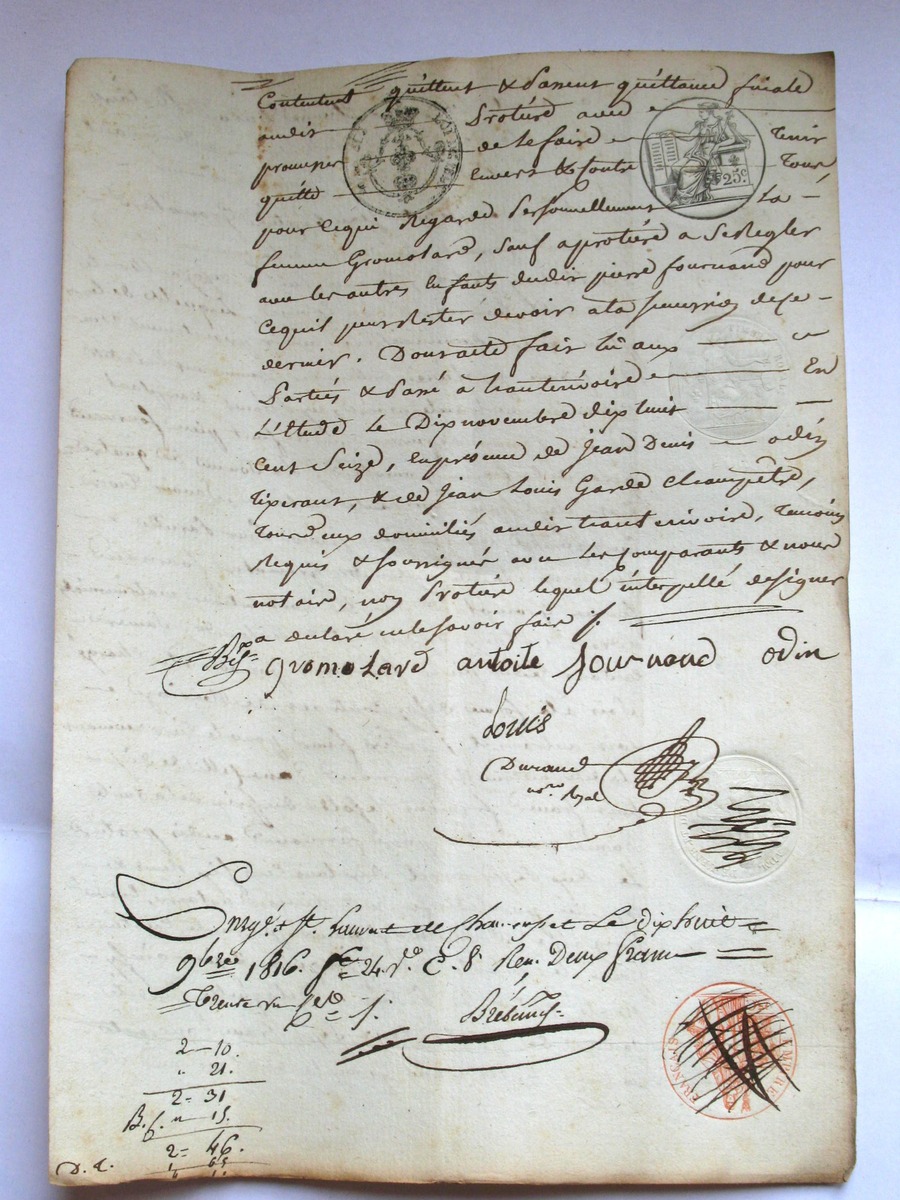 Contentent quittent & Passent quittance finale
audit Protiére avec
promesse de le faire tenir
quitte Envers & Contre Tous,
pour Cequi Regarde Personnellement La
femme Gromolard, Sauf a protiére a Se Regler
avec les autres Enfants dudit pierre fournand pour
Cequil peut Rester devoir a la succession de Ce
dernier. Dont acte fait lû aux
Parties & Passé à hauterivoire En
L'étude le Dix novembre dix huit
Cent Seize, En présence de Jean Denis odin
Tixerant, & de Jean Louis Garde Champêtre,
tous deux domiciliés audit hauterivoire, Temoins
Requis & soussignés avec les Comparants & nous
notaire, non Protiére lequel interpellé de signer
a déclaré ne le savoir faire ./.
gromolard antoite fournand odin
Louis
Durand
no.re Royal
Enrg.é à St. Laurent de Chamousset Le dix huit
9bre 1816. f.o 24 v.o C. 8 Reçu Deux francs
Trente un
2 — 10.
" 21.
2 = 31
B. 6. " 15.
2 = 46.
D. C.
25 c.